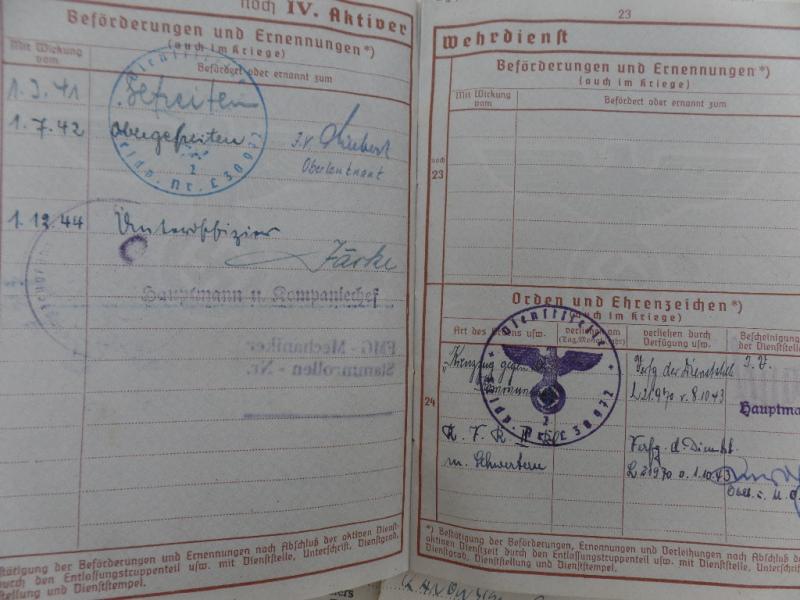 noch IV. Aktiver
Beförderungen und Ernennungen*)
(auch im Kriege)
Mit Wirkung vom
Befördert oder ernannt zum
1.3.41 Gefreiten
1.7.42 Obergefreiten
J.V.
Oberleutnant
Dienststelle
Feldp. Nr. L 30972
2
1.12.44 Unteroffizier
Järke
Hauptmann u. Kompaniechef
FMG - Mechaniker
Stammrollen - Nr.
stätigung der Beförderungen und Ernennungen nach Abschluß der aktiven Dienst-
durch den Entlassungstruppenteil usw. mit Dienststelle, Unterschrift, Dienstgrad,
stellung und Dienststempel.
23
Wehrdienst
Beförderungen und Ernennungen*)
(auch im Kriege)
Mit Wirkung vom
Befördert oder ernannt zum
noch
23
Orden und Ehrenzeichen*)
(auch im Kriege)
Art des Ordens usw.
verliehen am
(Tag, Monat, Jahr)
verliehen durch
Verfügung usw.
Bescheinigung
der Dienststel
24
"Kreuzzug gegen
Verfg der Dienststel
J.V.
L 21970 v. 8.10.43
Hauptma
K. V. K. II Kl.
Verfg. d. Dienstst.
m. Schwertern
L 21970 v. 1.10.43
Dienststelle
Feldp. Nr. L 30972
2
*) Bestätigung der Beförderungen, Ernennungen und Verleihungen nach Abschluß der
aktiven Dienstzeit durch den Entlassungstruppenteil usw. mit Dienststelle, Unterschrift,
Dienstgrad, Dienststellung und Dienststempel.